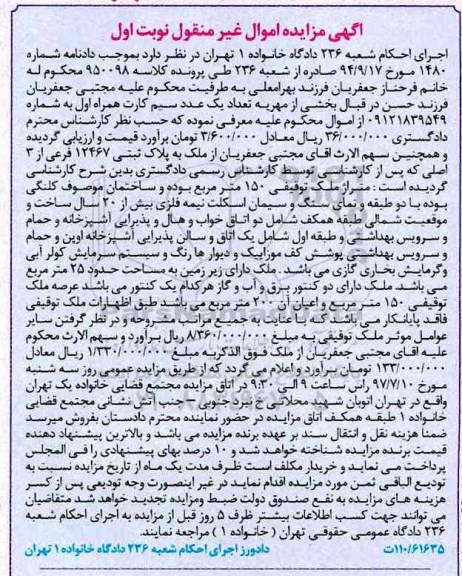 آگهی مزایده اموال غیر منقول نوبت اول
اجرای احکام شعبه ۲۳۶ دادگاه خانواده ۱ تهران در نظر دارد بموجب دادنامه شماره
۱۴۸۰ مورخ ۹۴/۹/۱۷ صادره از شعبه ۲۳۶ طی پرونده کلاسه ۹۵۰۰۹۸ محکوم له
خانم فرحناز جعفریان فرزند بهرامعلی به طرفیت محکوم علیه مجتبی جعفریان
فرزند حسن در قبال بخشی از مهریه تعداد یک عدد سیم کارت همراه اول به شماره
۰۹۱۲۱۸۳۹۵۴۹ از اموال محکوم علیه معرفی نموده که حسب نظر کارشناس محترم
دادگستری ۳۶/۰۰۰/۰۰۰ ریال معادل ۳/۶۰۰/۰۰۰ تومان برآورد قیمت و ارزیابی گردیده
و همچنین سهم الارث آقای مجتبی جعفریان از ملک به پلاک ثبتی ۱۲۴۶۷ فرعی از ۳
اصلی که پس از کارشناسی توسط کارشناس رسمی دادگستری بدین شرح کارشناسی
گردیده است : متراژ ملک توقیفی ۱۵۰ متر مربع بوده و ساختمان موصوف کلنگی
بوده با دو طبقه و نمای سنگ و سیمان اسکلت نیمه فلزی بیش از ۲۰ سال ساخت و
موقعیت شمالی طبقه همکف شامل دو اتاق خواب و هال و پذیرایی آشپزخانه و حمام
و سرویس بهداشتی و طبقه اول شامل یک اتاق و سالن پذیرایی آشپزخانه اوپن و حمام
و سرویس بهداشتی پوشش کف موزاییک و دیوار ها رنگ و سیستم سرمایش کولر آبی
وگرمایش بخاری گازی می باشد . ملک دارای زیر زمین به مساحت حدود ۲۵ متر مربع
می باشد. ملک دارای دو کنتور برق و آب و گاز هرکدام یک کنتور می باشد عرصه ملک
توقیفی ۱۵۰ متر مربع و اعیان آن ۲۰۰ متر مربع می باشد طبق اظهارات ملک توقیفی
فاقد پایانکار می باشد که با عنایت به جمیع مراتب مشروحه و در نظر گرفتن سایر
عوامل موثر ملک توقیفی به مبلغ ۸/۳۶۰/۰۰۰/۰۰۰ ریال برآورد و سهم الارث محکوم
علیه آقای مجتبی جعفریان از ملک فوق الذکر به مبلغ ۱/۳۳۰/۰۰۰/۰۰۰ ریال معادل
۱۳۳/۰۰۰/۰۰۰ تومـان بـرآورد و اعلام می گردد که از طریق مزایده عمومی روز سه شنبه
مورخ ۹۷/۷/۱۰ راس ساعت ۹ الی ۹:۳۰ در اتاق مزایده مجتمع قضایی خانواده یک تهران
واقع در تهران اتوبان شهید محلاتی خ نبرد جنوبی - جنب آتش نشانی مجتمع قضایی
خانواده ۱ طبقه همکف اتاق مزایده در حضور نماینده محترم دادستان بفروش میرسد
ضمنا هزینه نقل و انتقال سند بر عهده برنده مزایده می باشد و بالاترین پیشنهاد دهنده
قیمت برنده مزایده شناخته خواهد شد و ۱۰ درصد بهای پیشنهادی را فی المجلس
پرداخت می نماید و خریدار مکلف است ظرف مدت یک ماه از تاریخ مزایده نسبت به
تودیع الباقی ثمن مورد مزایده اقدام نماید در غیر اینصورت وجه تودیعی پس از کسر
هزینه های مزایده به نفع صندوق دولت ضبط ومزایده تجدید خواهد شد متقاضیان
می توانند جهت کسب اطلاعات بیشتر ظرف ۵ روز قبل از مزایده به اجرای احکام شعبه
۲۳۶ دادگاه عمومی حقوقی تهران ( خانواده ۱ ) مراجعه نمایند.
۱۱۰/۶۱۶۳۵ت دادورز اجرای احکام شعبه ۲۳۶ دادگاه خانواده ۱ تهران